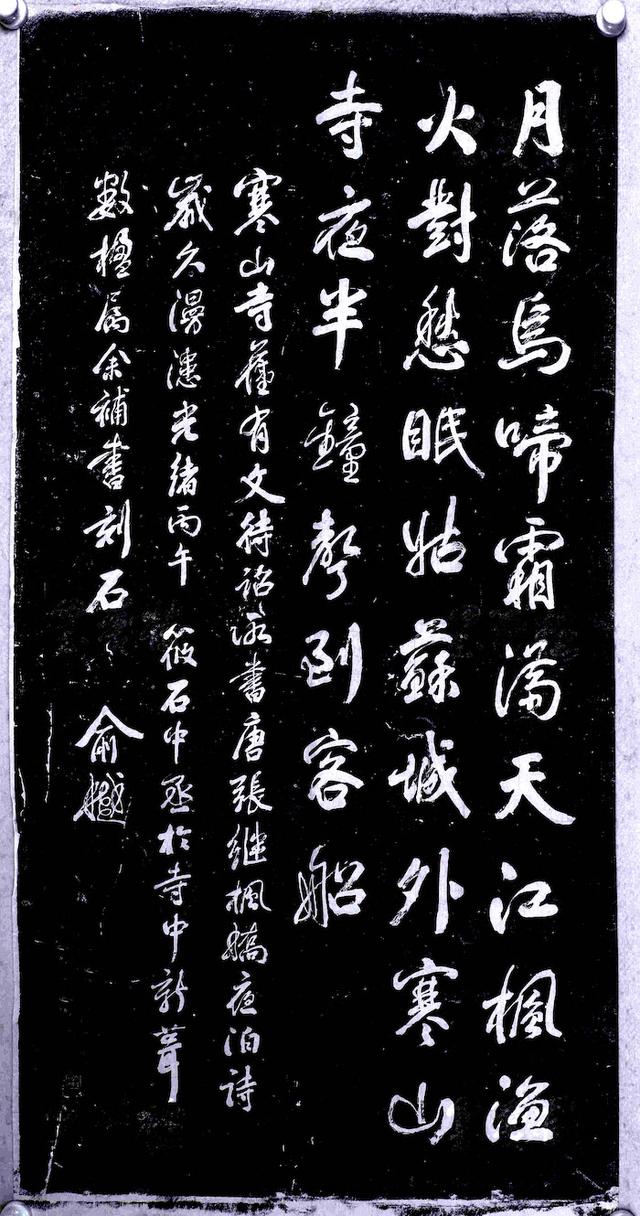 月落烏啼霜滿天江楓漁
火對愁眠姑蘇城外寒山
寺夜半鐘聲到客船
寒山寺舊有文待詔所書唐張繼楓橋夜泊詩
歲久漫漶光緒丙午筱石中丞於寺中新葺
數楹屬余補書刻石俞樾